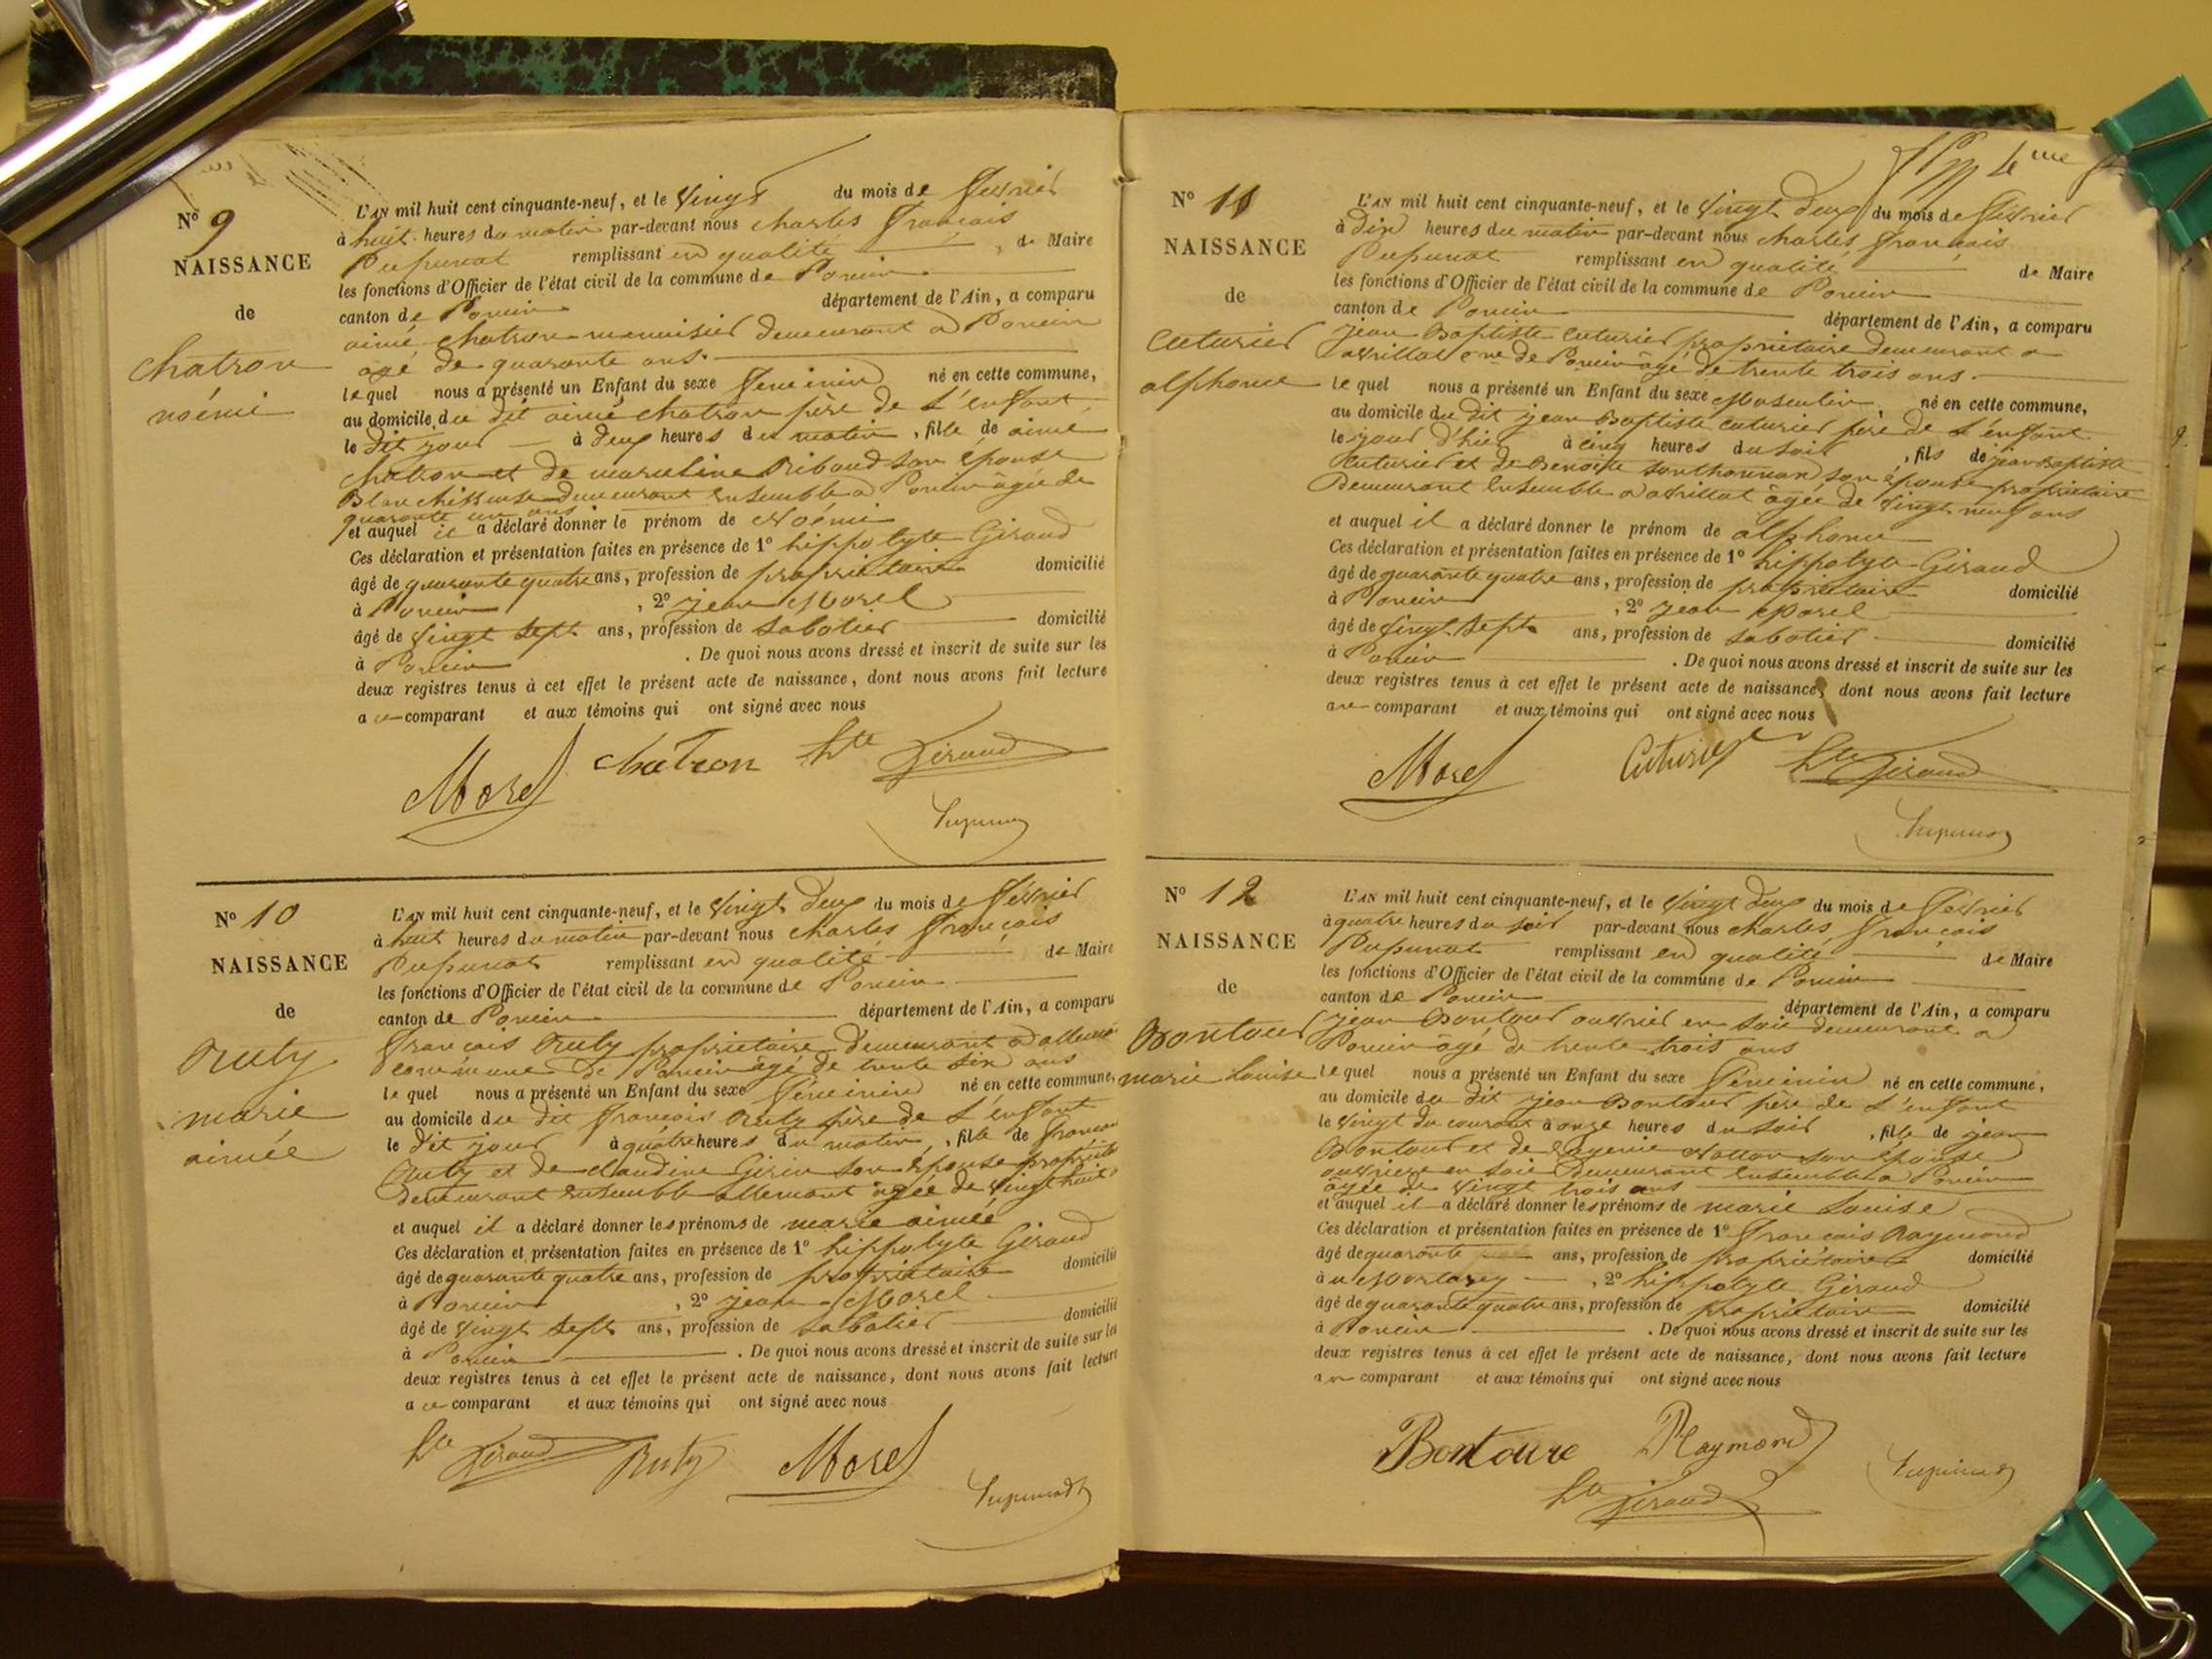 N° 9
NAISSANCE
de
chatron
noémi
L'AN mil huit cent cinquante-neuf, et le vingt du mois de février
à huit heures du matin par-devant nous charles français
Pupunat remplissant en qualité de Maire
les fonctions d'Officier de l'état civil de la commune de Poncin
canton de Poncin département de l'Ain, a comparu
aimé chatron menuisier demeurant a Poncin
agé de quarante ans.
lequel nous a présenté un Enfant du sexe féminin né en cette commune,
au domicile du dit aimé chatron père de l'enfant
le dit jour à deux heures du matin, fille de aimé
chatron et de marceline Ribaud son épouse
Blanchisseuse demeurant ensemble a Poncin âgée de
quarante un ans
et auquel il a déclaré donner le prénom de Noémi
Ces déclaration et présentation faites en présence de 1° hippolyte Giraud
âgé de quarante quatre ans, profession de propriétaire domicilié
à Poncin, 2° jean Morel
âgé de vingt sept ans, profession de sabotier domicilié
à Poncin. De quoi nous avons dressé et inscrit de suite sur les
deux registres tenus à cet effet le présent acte de naissance, dont nous avons fait lecture
au comparant et aux témoins qui ont signé avec nous
Morel chatron hte Giraud
Pupunat
N° 10
NAISSANCE
de
Ruty
marie
aimée
L'AN mil huit cent cinquante-neuf, et le vingt deux du mois de février
à huit heures du matin par-devant nous charles français
Pupunat remplissant en qualité de Maire
les fonctions d'Officier de l'état civil de la commune de Poncin
canton de Poncin département de l'Ain, a comparu
français Ruty propriétaire demeurant a
commune de Poncin âgé de trente six ans
lequel nous a présenté un Enfant du sexe féminin né en cette commune,
au domicile du dit français Ruty père de l'enfant
le dit jour à quatre heures du matin, fille de français
Ruty et de claudine Girin son épouse
demeurant ensemble allemont âgée de vingt huit
et auquel il a déclaré donner les prénoms de marie aimée
Ces déclaration et présentation faites en présence de 1° hippolyte Giraud
âgé de quarante quatre ans, profession de propriétaire domicilié
à Poncin, 2° jean Morel
âgé de vingt sept ans, profession de sabotier domicilié
à Poncin. De quoi nous avons dressé et inscrit de suite sur les
deux registres tenus à cet effet le présent acte de naissance, dont nous avons fait lecture
au comparant et aux témoins qui ont signé avec nous
hte Giraud Ruty Morel
Pupunat
4me
N° 11
NAISSANCE
de
Cuturier
alphonse
L'AN mil huit cent cinquante-neuf, et le vingt deux du mois de février
à dix heures du matin par-devant nous charles français
Pupunat remplissant en qualité de Maire
les fonctions d'Officier de l'état civil de la commune de Poncin
canton de Poncin département de l'Ain, a comparu
jean Baptiste cuturier propriétaire demeurant a
avrillat cne de Poncin âgé de trente trois ans.
lequel nous a présenté un Enfant du sexe Masculin né en cette commune,
au domicile du dit jean Baptiste cuturier père de l'enfant
le jour d'hier à cinq heures du soir, fils de jean Baptiste
cuturier et de Benoite son épouse propriétaire
demeurant ensemble a avrillat âgée de vingt neuf ans
et auquel il a déclaré donner le prénom de alphonse
Ces déclaration et présentation faites en présence de 1° hippolyte Giraud
âgé de quarante quatre ans, profession de propriétaire domicilié
à Poncin, 2° jean Morel
âgé de vingt sept ans, profession de sabotier domicilié
à Poncin. De quoi nous avons dressé et inscrit de suite sur les
deux registres tenus à cet effet le présent acte de naissance, dont nous avons fait lecture
au comparant et aux témoins qui ont signé avec nous
Morel Cuturier hte Giraud
Pupunat
N° 12
NAISSANCE
de
Bontour
marie Louise
L'AN mil huit cent cinquante-neuf, et le vingt deux du mois de février
à quatre heures du soir par-devant nous charles français
Pupunat remplissant en qualité de Maire
les fonctions d'Officier de l'état civil de la commune de Poncin
canton de Poncin département de l'Ain, a comparu
jean Bontour ouvrier en soie demeurant a
Poncin âgé de trente trois ans
lequel nous a présenté un Enfant du sexe féminin né en cette commune,
au domicile du dit jean Bontour père de l'enfant
le vingt du courant à onze heures du soir, fille de jean
Bontour et de Eugenie son épouse
ouvrière en soie demeurant ensemble a Poncin
âgée de vingt trois ans
et auquel il a déclaré donner les prénoms de marie Louise
Ces déclaration et présentation faites en présence de 1° français Raymond
âgé de quarante ans, profession de propriétaire domicilié
à, 2° hippolyte Giraud
âgé de quarante quatre ans, profession de propriétaire domicilié
à Poncin. De quoi nous avons dressé et inscrit de suite sur les
deux registres tenus à cet effet le présent acte de naissance, dont nous avons fait lecture
au comparant et aux témoins qui ont signé avec nous
Bontoure Raymond
Pupunat
hte Giraud